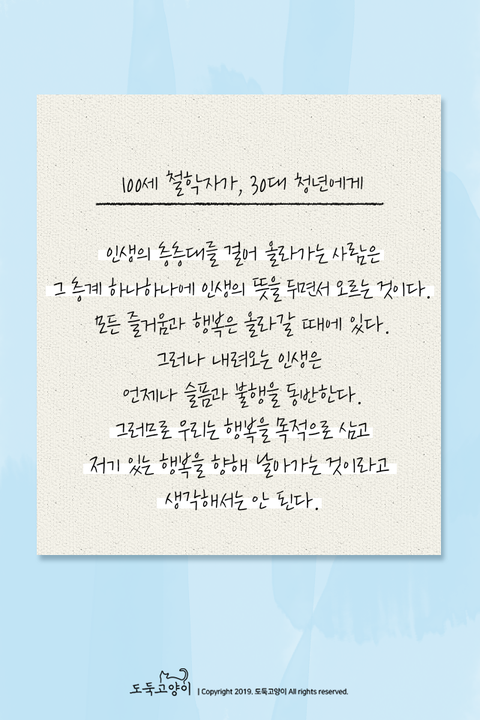 100세 철학자가, 30대 청년에게
인생의 층층대를 걸어 올라가는 사람은
그 층계 하나하나에 인생의 뜻을 두면서 오르는 것이다.
모든 즐거움과 행복은 올라갈 때에 있다.
그러나 내려오는 인생은
언제나 슬픔과 불행을 동반한다.
그러므로 우리는 행복을 목적으로 삼고
저기 있는 행복을 향해 날아가는 것이라고
생각해서는 안 된다.
도둑고양이 | Copyright 2019. 도둑고양이 All rights reserved.